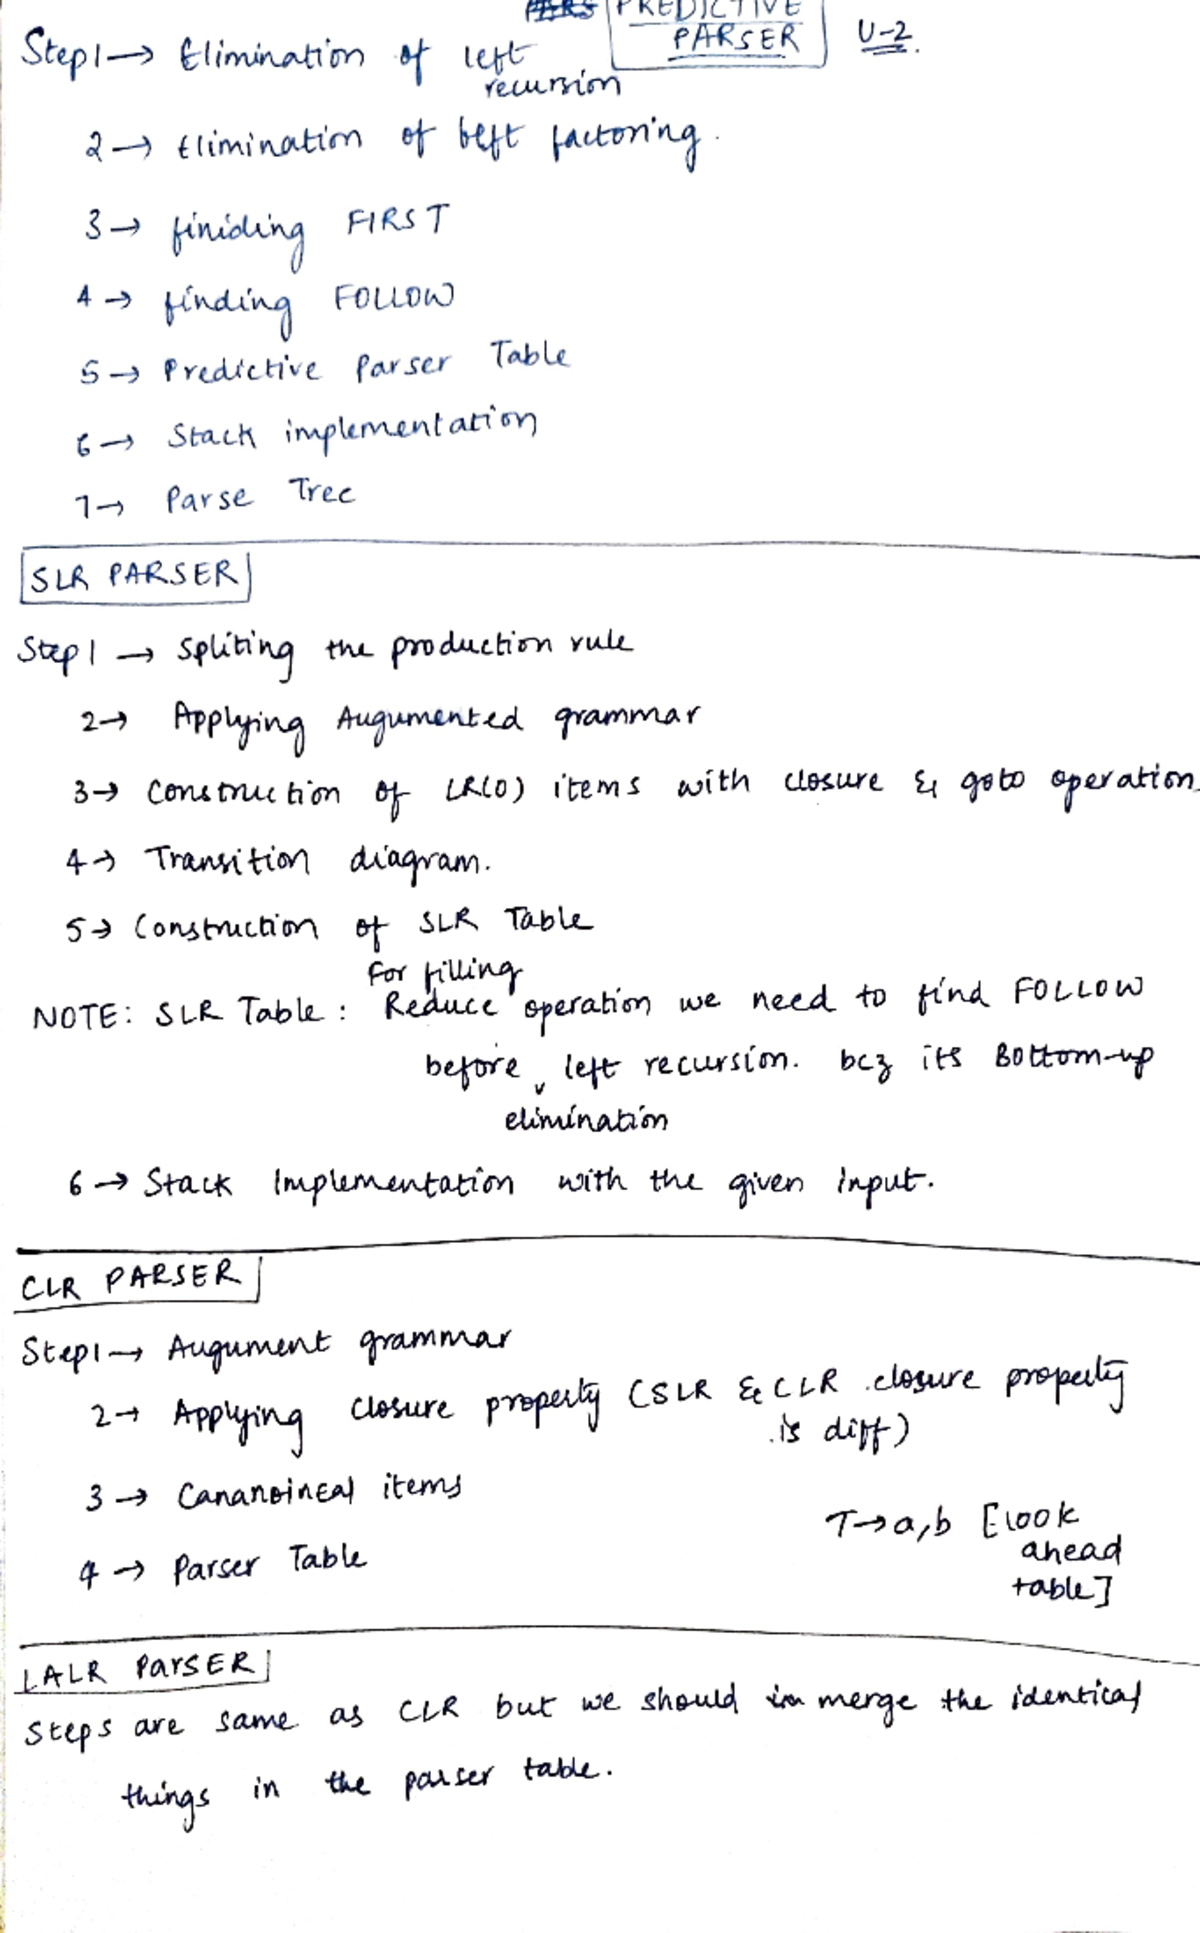 PREDICTIVE
PARSER U-2
Step 1 → Elimination of left
recursion
2 → Elimination of left factoring.
3 → finiding FIRST
4 → finding FOLLOW
5 → Predictive Parser Table
6 → Stack implementation
7 → Parse Tree
SLR PARSER
Step 1 → Spliting the production rule
2 → Applying Augumented grammar
3 → Construction of LR(0) items with closure & goto operation.
4 → Transition diagram.
5 → Construction of SLR Table
For filling
NOTE: SLR Table: Reduce operation we need to find FOLLOW
before left recursion. bcz its Bottom-up
elimination
6 → Stack Implementation with the given Input.
CLR PARSER
Step 1 → Augument grammar
2 → Applying closure property (SLR & CLR closure property
is diff)
3 → Cananoineal items
4 → Parser Table
T → a, b [look
ahead
table]
LALR PARSER
Steps are same as CLR but we should merge the identical
things in the parser table.